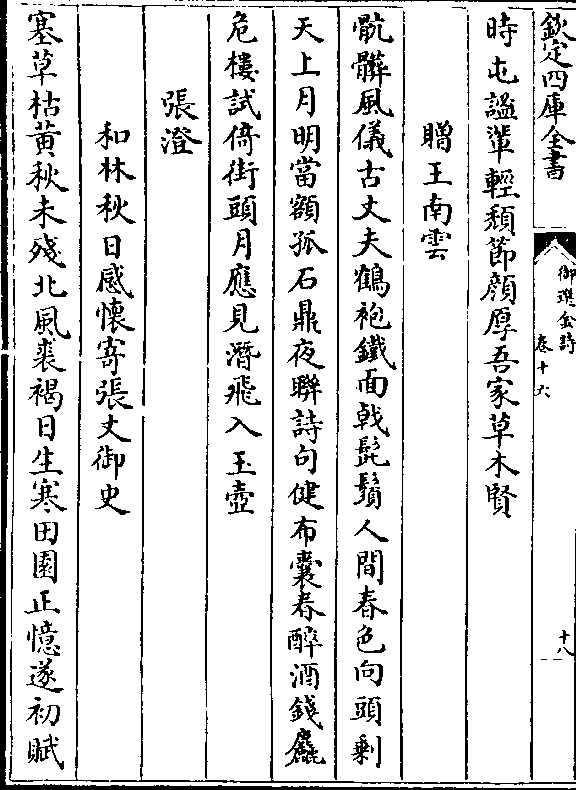 欽定四庫全書
御選金詩
卷十六
十八
時屯謚輩輕頽節顔厚吾家草木賢
贈王南雲
骯髒風儀古丈夫鶴袍鐵面戟髭鬚人間春色向頭剩
天上月明當額孤石鼎夜聯詩句健布囊春醉酒錢麤
危樓試倚街頭月應見濳飛入玉壺
張澄
和林秋日感懷寄張丈御史
塞草枯黃秋未殘北風裘褐日生寒田園正憶遂初賦